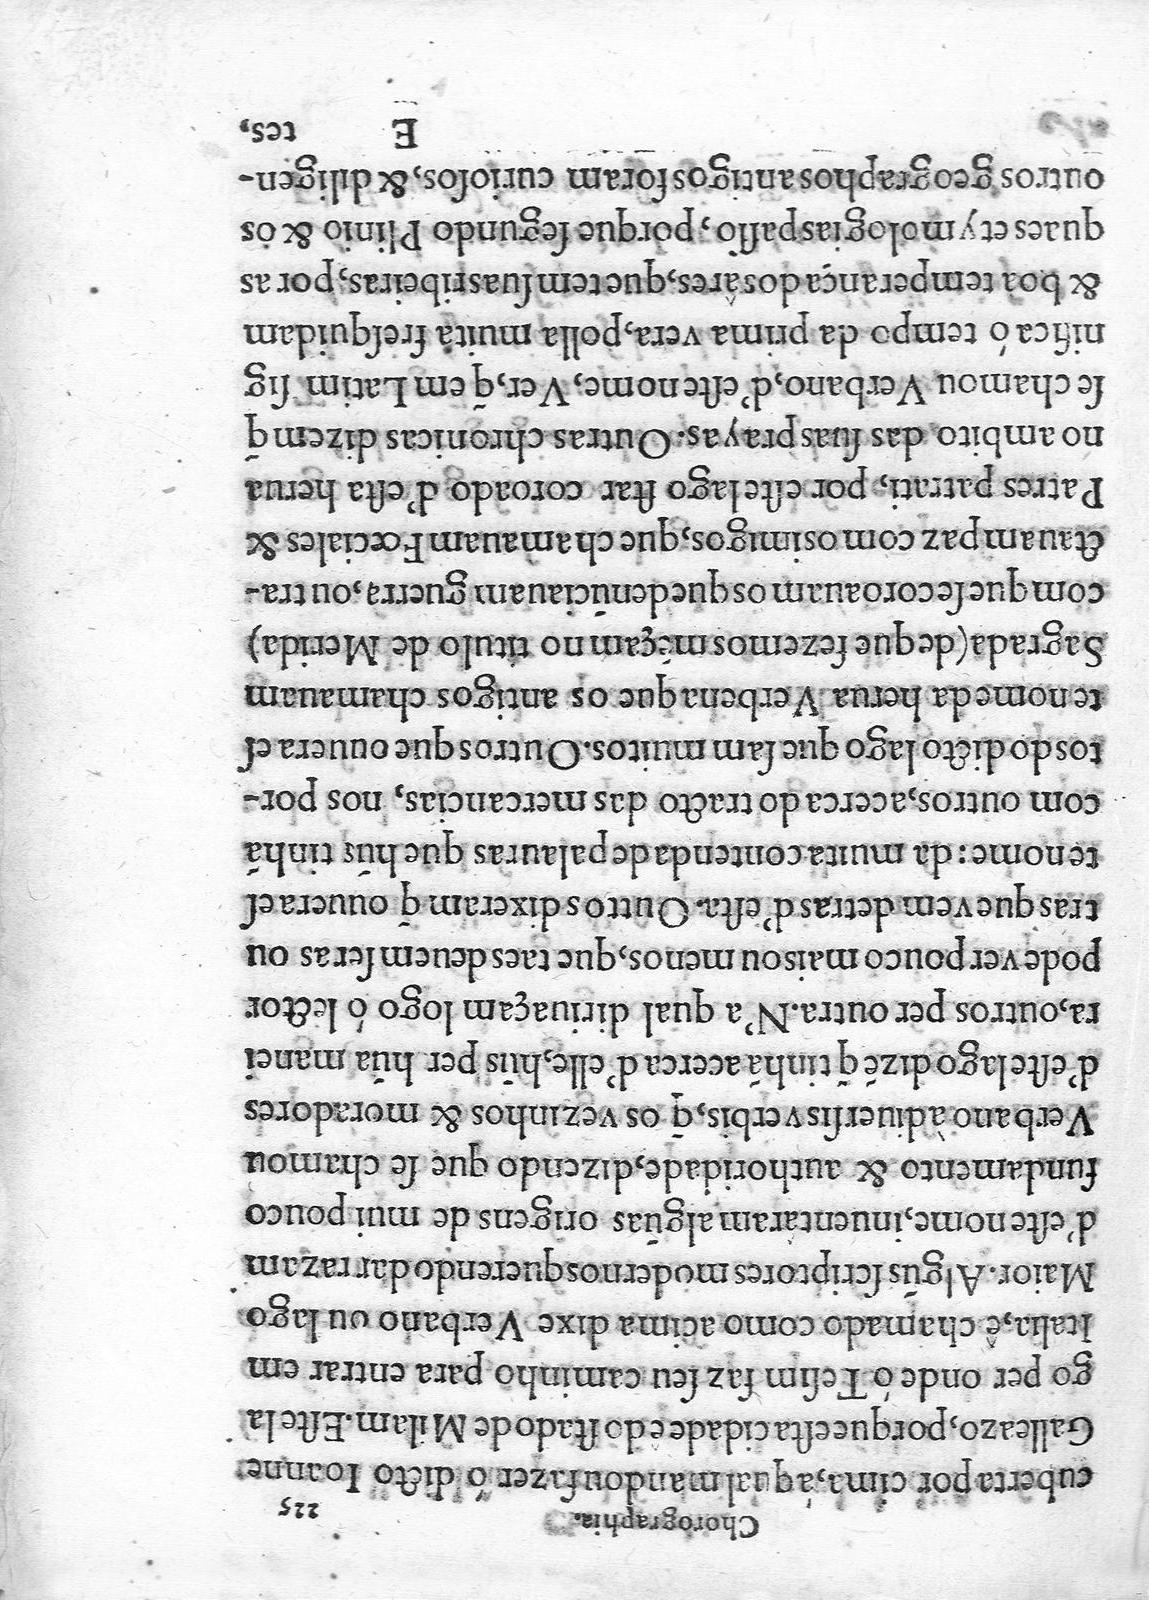 Chorographia. 225
cuberta por cima, a qual mandou fazer ó dicto Ioanne
Galleazo, porque esta cidade e do stado de Milam. Este la
go per onde ó Tesim faz seu caminho para entrar em
Italia, ê chamado como acima dixe Verbano ou lago
Maior. Algũs scriptores modernos querendo dar razam
d'este nome, inuentaram algũas origens de mui pouco
fundamento & authoridade, dizendo que se chamou
Verbano à diuersis verbis, q̃ os vezinhos & moradores
d'este lago dizẽ q̃ tinhã acerca d'elle, hũs per hũa manei
ra, outros per outra. N'a qual diriuaçam logo ó lector
pode ver pouco mais ou menos, que taes deuem ser as ou
tras que vem detras d'esta. Outros dixeram q̃ ouuera es
te nome: da muita contenda de palauras que hũs tinhã
com outros, acerca do tracto das mercancias, nos por-
tos do dicto lago que sam muitos. Outros que ouuera es
te nome da herua Verbena que os antigos chamauam
Sagrada (de que fezemos mẽçam no titulo de Merida)
com que se coroauam os que denũciauam guerra, ou tra-
ctauam paz com os imigos, que chamauam Fœciales &
Patres patrati, por este lago star coroado d'esta herua
no ambito das suas prayas. Outras chronicas dizem q̃
se chamou Verbano, d'este nome, Ver, q̃ em Latim sig
nifica ó tempo da prima vera, polla muita fresquidam
& boa temperança dos âres, que tem suas ribeiras, por as
quaes etymologias passo, porque segundo Plinio & os
outros geographos antigos foram curiosos, & diligen-
E tes,